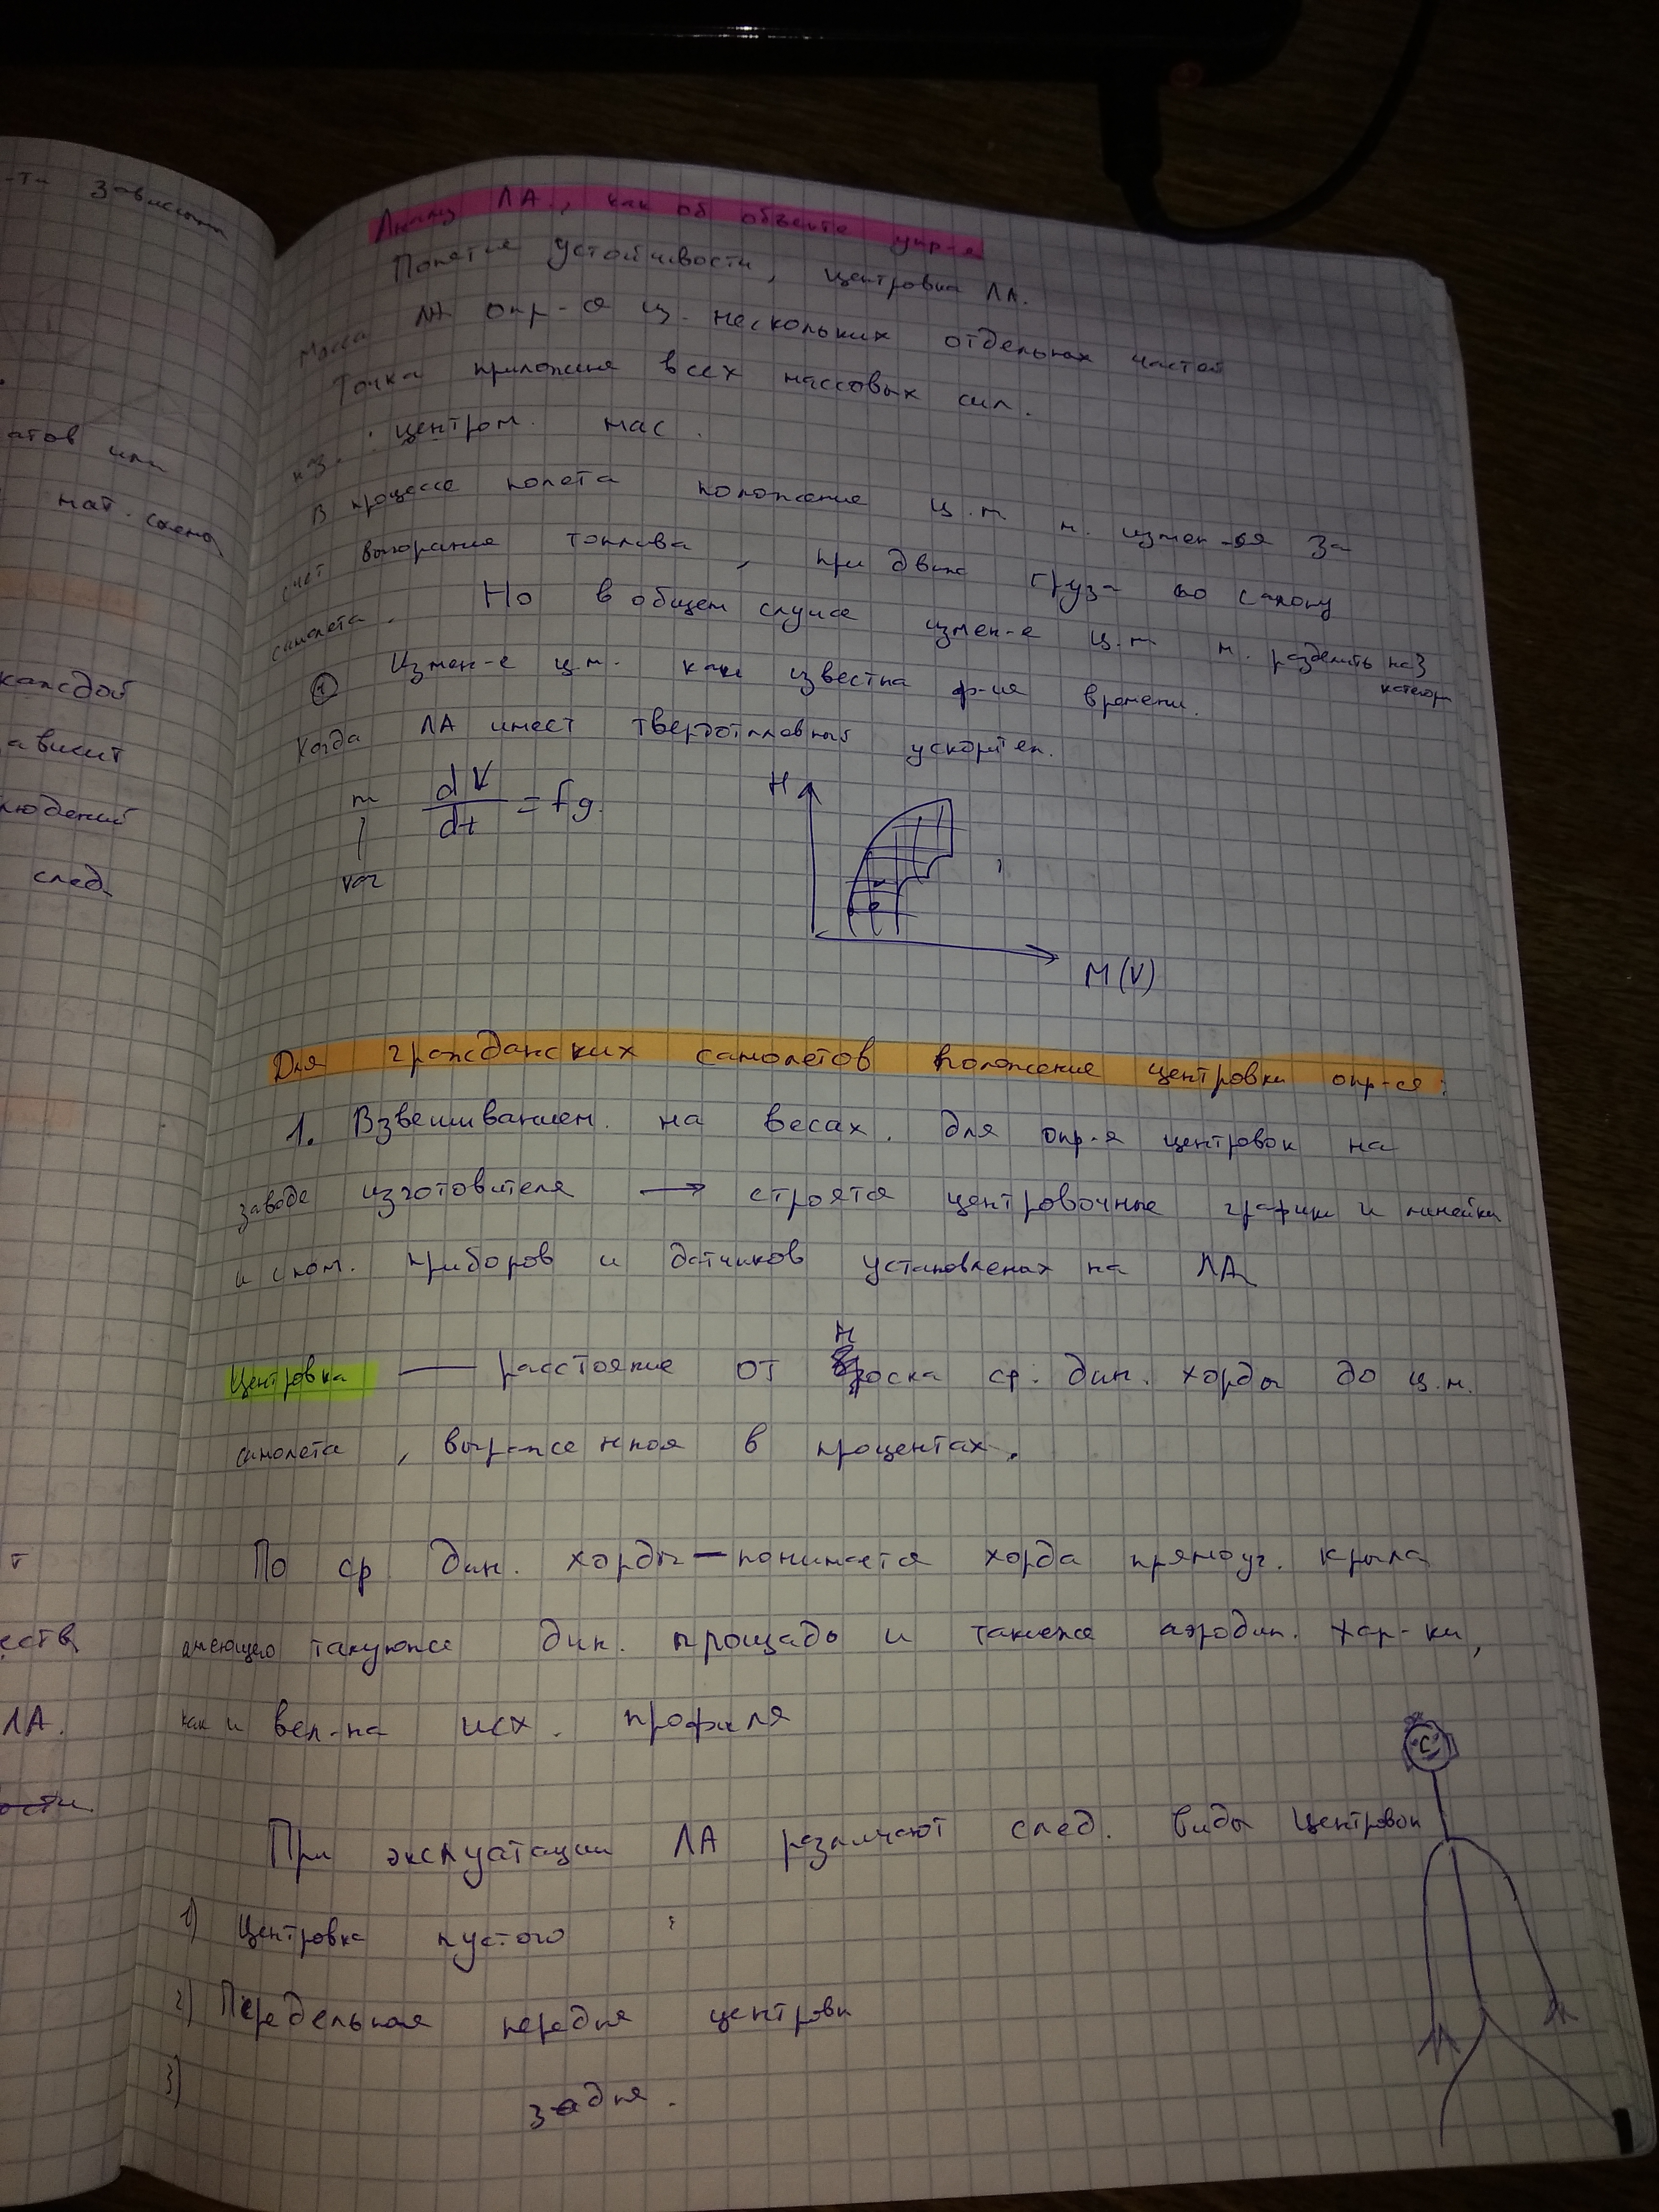 -ти зависит
атов или
мат. схема
каждой
ависит
людений
след.
т
еств,
ЛА.
ости
ЛА., как об объекте упр-я
Понятие устойчивости, центровка ЛА.
Масса ЛА опр-ся из нескольких отдельных частей
Точка приложия всех массовых сил.
наз. центром мас.
В процессе полета положение ц.м м. измен-ся за
счет выгорание топлива, при движ груза по салону
самолета. Но в общем случае измен-е ц.м м. разделить на 3
категор
① Измен-е ц.м. как известна ф-ия времени.
Когда ЛА имеет твердотпливный ускорител.
m dV/dt = fg.
var
H
M(V)
Для гражданских самолетов положение центровки опр-ся:
1. Взвешиванием на весах. Для опр-я центровок на
заводе изготовителя → строятся центровочные график и линейки
и с пом. приборов и датчиков установленах на ЛА
Центровка — расстояние от носка ср. дин. хорды до ц.м.
самолета, выраженная в процентах.
По ср. дин. хорды — понимается хорда прямоуг. крыла
имеющего такуюже дин. площадь и такиеже аэродин. хар-ки,
как и вел-на исх. профиля
При эксплуатации ЛА различают след. виды центровок
1) Центровка пустого
2) Передельная передня центровк
3) задня.
C